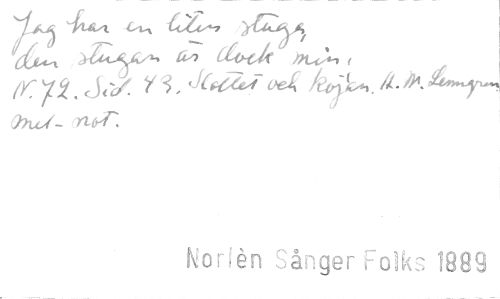 Jag har en liten stuga,
den stugan är dock min,
N. 72. Sid. 43. Slottet och kojan. A. M. Lenngren
mel-not.
Norlèn Sånger Folks 1889